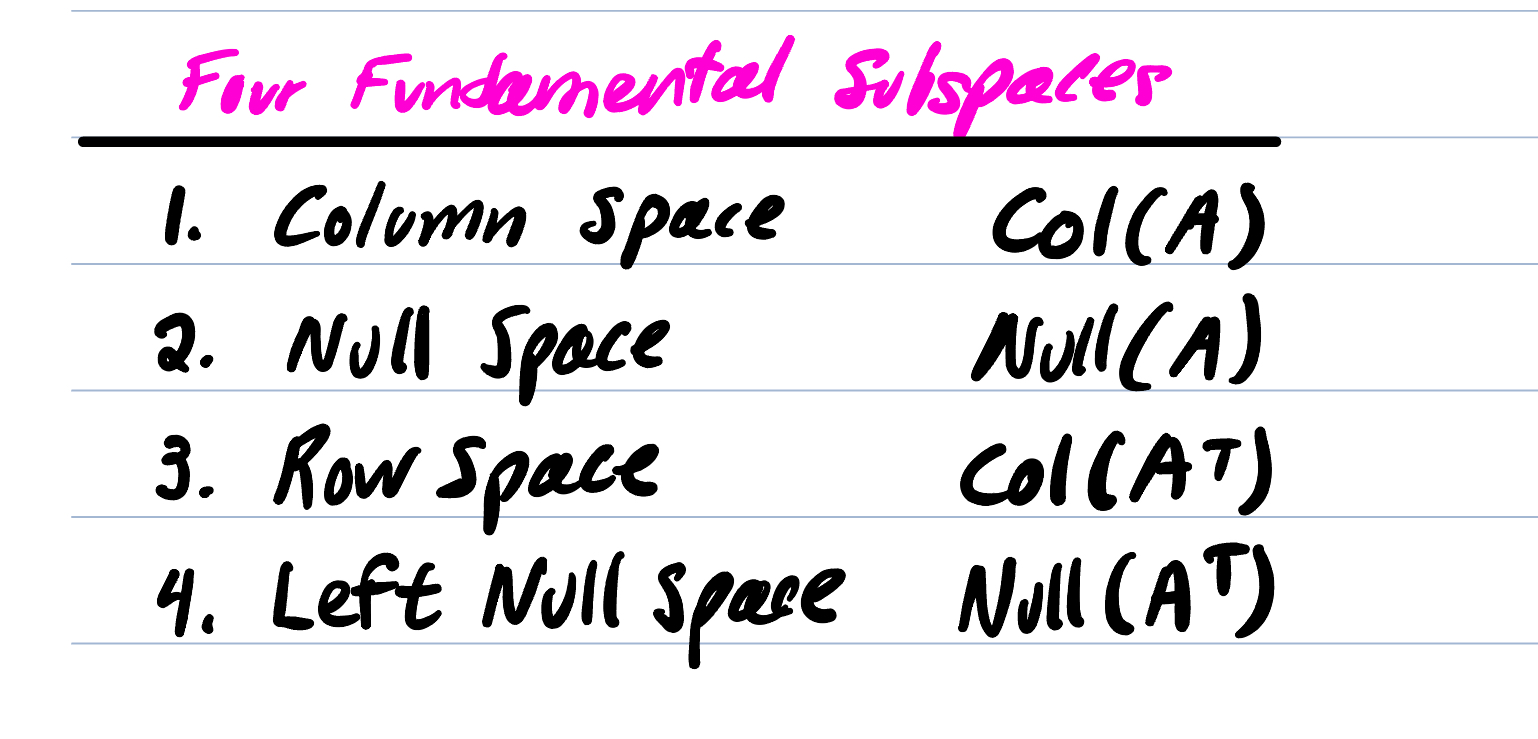 Four Fundamental Subspaces
1. Column Space Col(A)
2. Null Space Null(A)
3. Row Space Col(Aᵀ)
4. Left Null Space Null(Aᵀ)